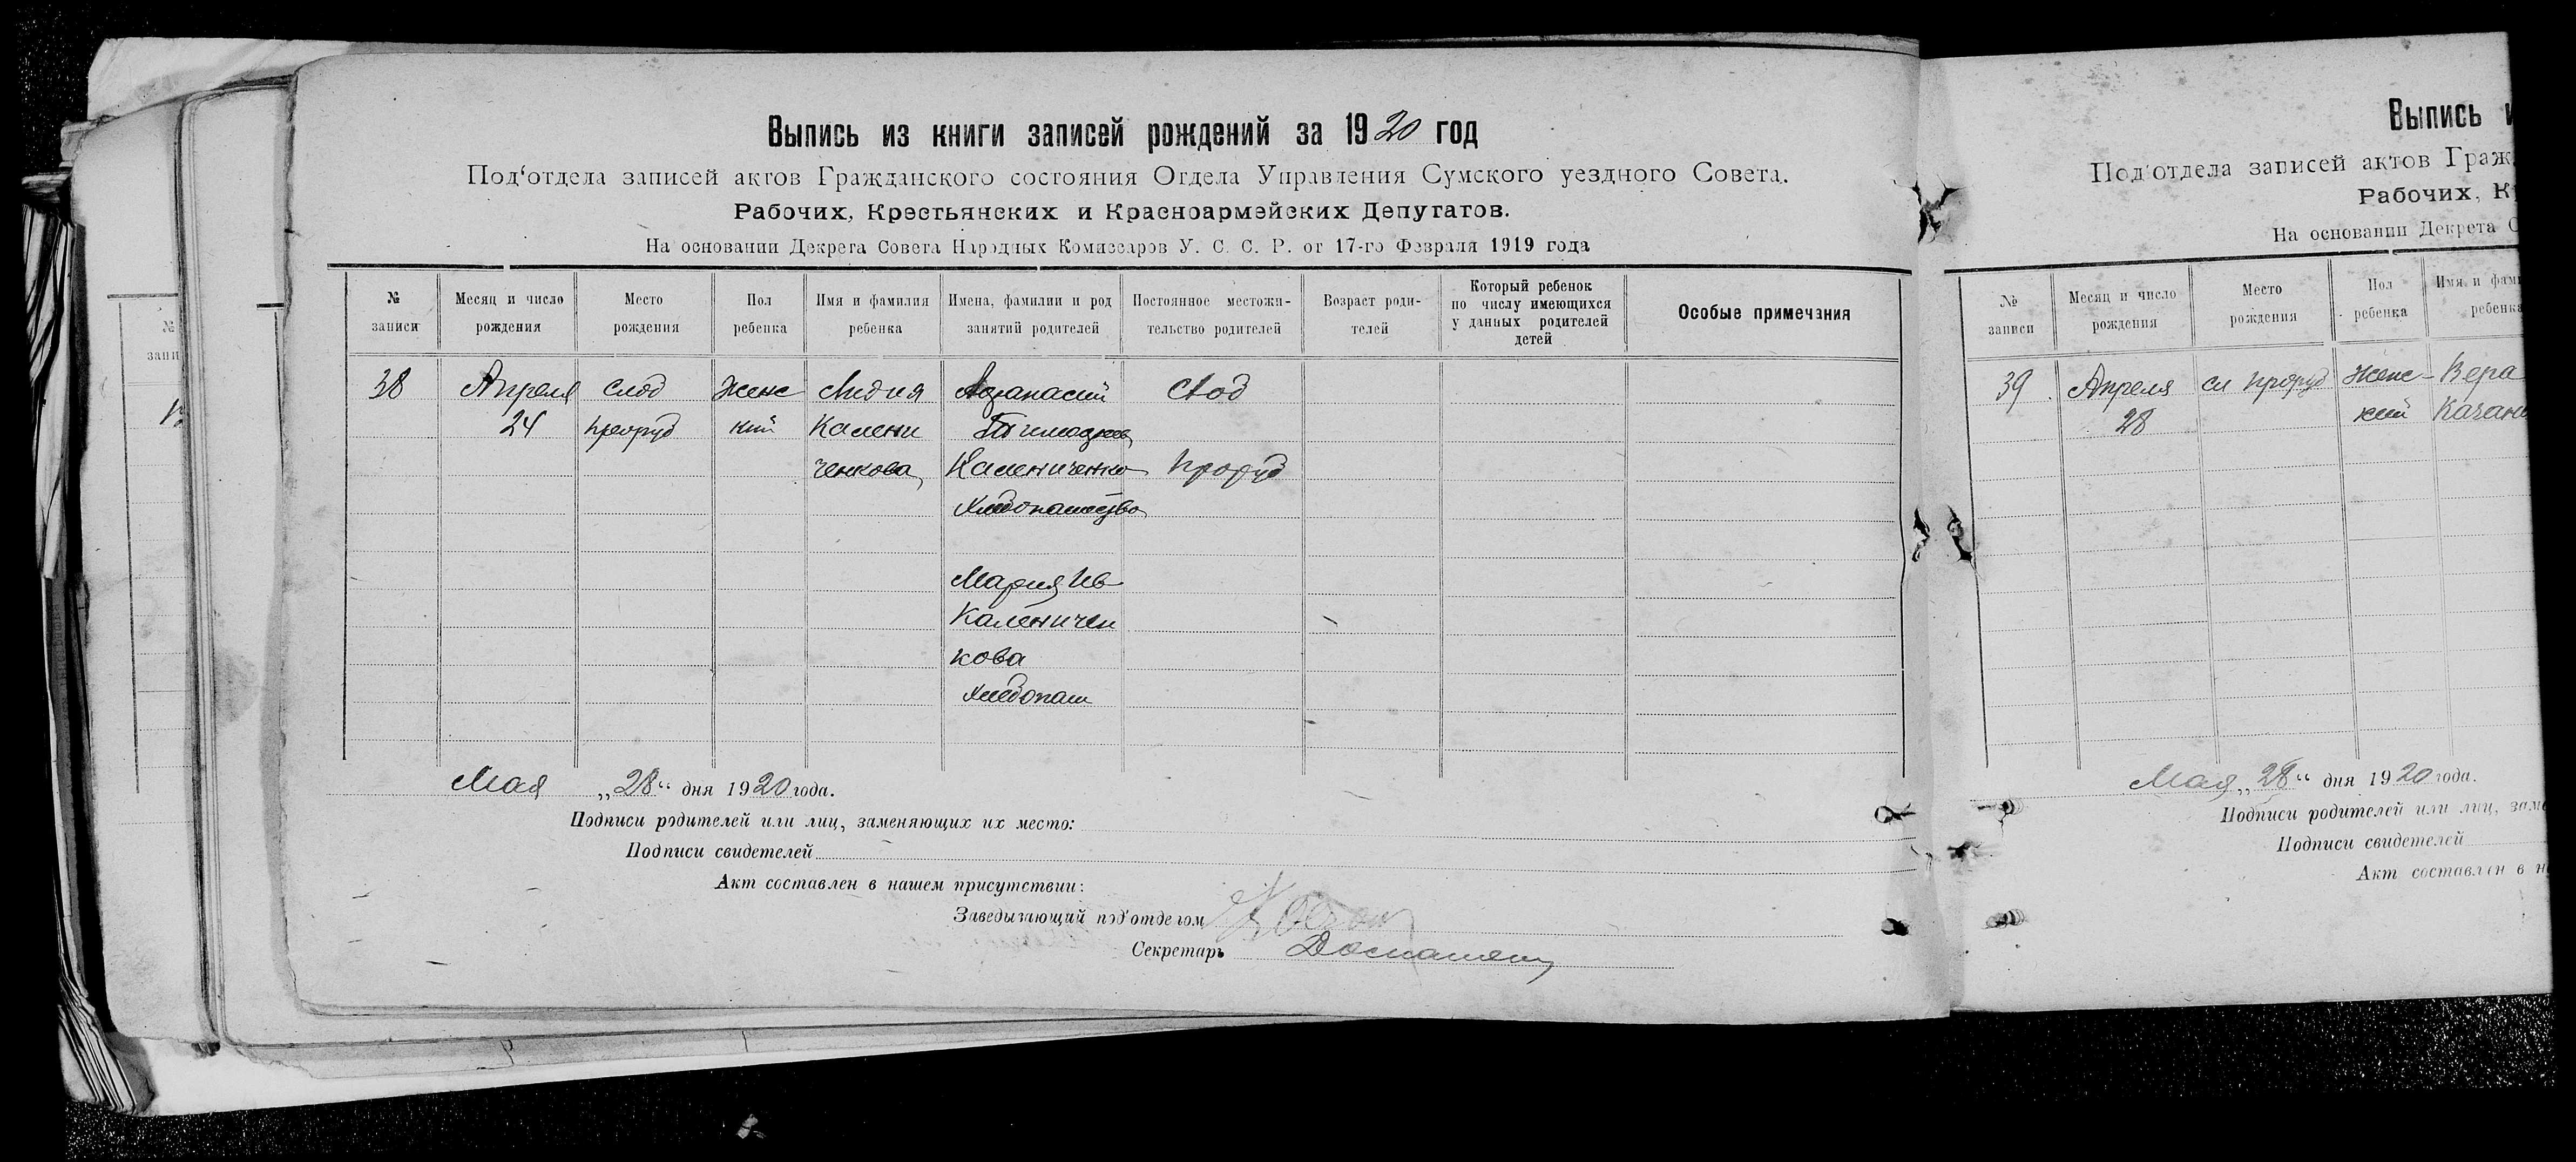 Выпись из книги записей рождений за 1920 год
Под'отдела записей актов Гражданского состояния Отдела Управления Сумского уездного Совета.
Рабочих, Крестьянских и Красноармейских Депутатов.
На основании Декрета Совета Народных Комиссаров У. С. С. Р. от 17-го Февраля 1919 года
№ записи
Месяц и число рождения
Место рождения
Пол ребенка
Имя и фамилия ребенка
Имена, фамилии и род занятий родителей
Постоянное местожи-
тельство родителей
Возраст роди-
телей
Который ребенок
по числу имеющихся
у данных родителей
детей
Особые примечания
38 Апреля слоб Женс Лидия Афанасий Слоб
24 проруб кий Калени Тимофеев
ченкова Калениченко Проруб
Хлебопашество
Мария Ив
Каленичен
кова
Хлебопаш
Мая „28“ дня 1920 года.
Подписи родителей или лиц, заменяющих их место:
Подписи свидетелей
Акт составлен в нашем присутствии:
Заведывающий под'отделом
Секретарь
№
запи
Выпись и
Под'отдела записей актов Граж
Рабочих, Кр
На основании Декрета С
№ записи
Месяц и число рождения
Место рождения
Пол ребенка
Имя и фами
ребенка
39 Апреля сл Проруб Женс- Вера
28 кий Качан
Мая „28“ дня 1920 года.
Подписи родителей или лиц, заме
Подписи свидетелей
Акт составлен в н